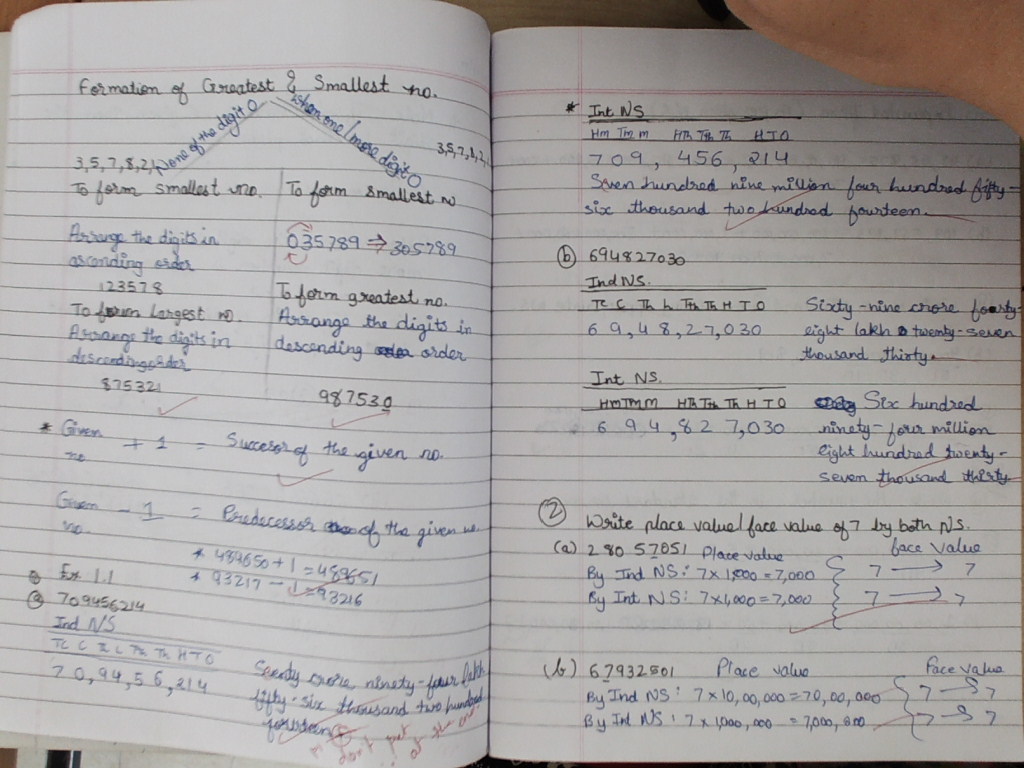 Formation of Greatest & Smallest no.
None of the digit 0
When one/more digit 0
3,5,7,8,2,1
3,5,7,8,2,
To form smallest no.
Arrange the digits in
asconding order
123578
To form largest no.
Arrange the digits in
descending order
875321
To form smallest no
035789 ⇒ 305789
To form greatest no.
Arrange the digits in
descending order
987530
* Given no + 1 = Succesor of the given no.
Given no. - 1 = Predecessor of the given no.
* 489650 + 1 = 489651
* 93217 - 1 = 93216
Ex 1.1
(a) 709456214
Ind NS
TC C TL L TTh Th H T O
70,94,56,214
Seventy crore, ninety-four lakh
fifty-six thousand two hundred
fourteen
don't put
* Int NS
HM TM M HTh TTh Th H T O
709, 456, 214
Seven hundred nine million four hundred fifty-
six thousand two hundred fourteen.
(b) 694827030
Ind NS.
TC C TL L TTh Th H T O
69,48,27,030
Sixty-nine crore forty-
eight lakh twenty-seven
thousand thirty.
Int NS.
HM TM M HTh TTh Th H T O
694,827,030
Six hundred
ninety-four million
eight hundred twenty-
seven thousand thirty
(2) Write place value/face value of 7 by both NS.
(a) 28057051 Place value face value
By Ind NS: 7×1,000 = 7,000 7 → 7
By Int NS: 7×1,000 = 7,000 7 → 7
(b) 67932801 Place value Face value
By Ind NS: 7×10,00,000 = 70,00,000 7 → 7
By Int NS: 7×1,000,000 = 7,000,000 7 → 7